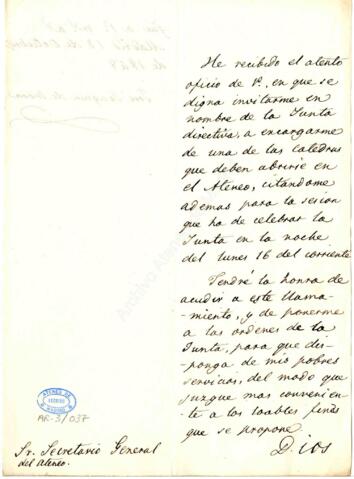 He recibido el atento
oficio de V., en que se
digna invitarme en
nombre de la Junta
directiva, a encargarme
de una de las catedras
que deben abrirse en
el Ateneo, citándome
ademas para la sesion
que ha de celebrar la
Junta en la noche
del lunes 16 del corriente.
Tendré la honra de
acudir a este llama-
-miento, y de ponerme
a las ordenes de la
Junta, para que dis-
-ponga de mis pobres
servicios, del modo que
juzgue mas convenien-
-te a los loables fines
que se propone.
Dios
Sr. Secretario General
del Ateneo.
ATENEO DE
MADRID
AR-3/037
Archivo